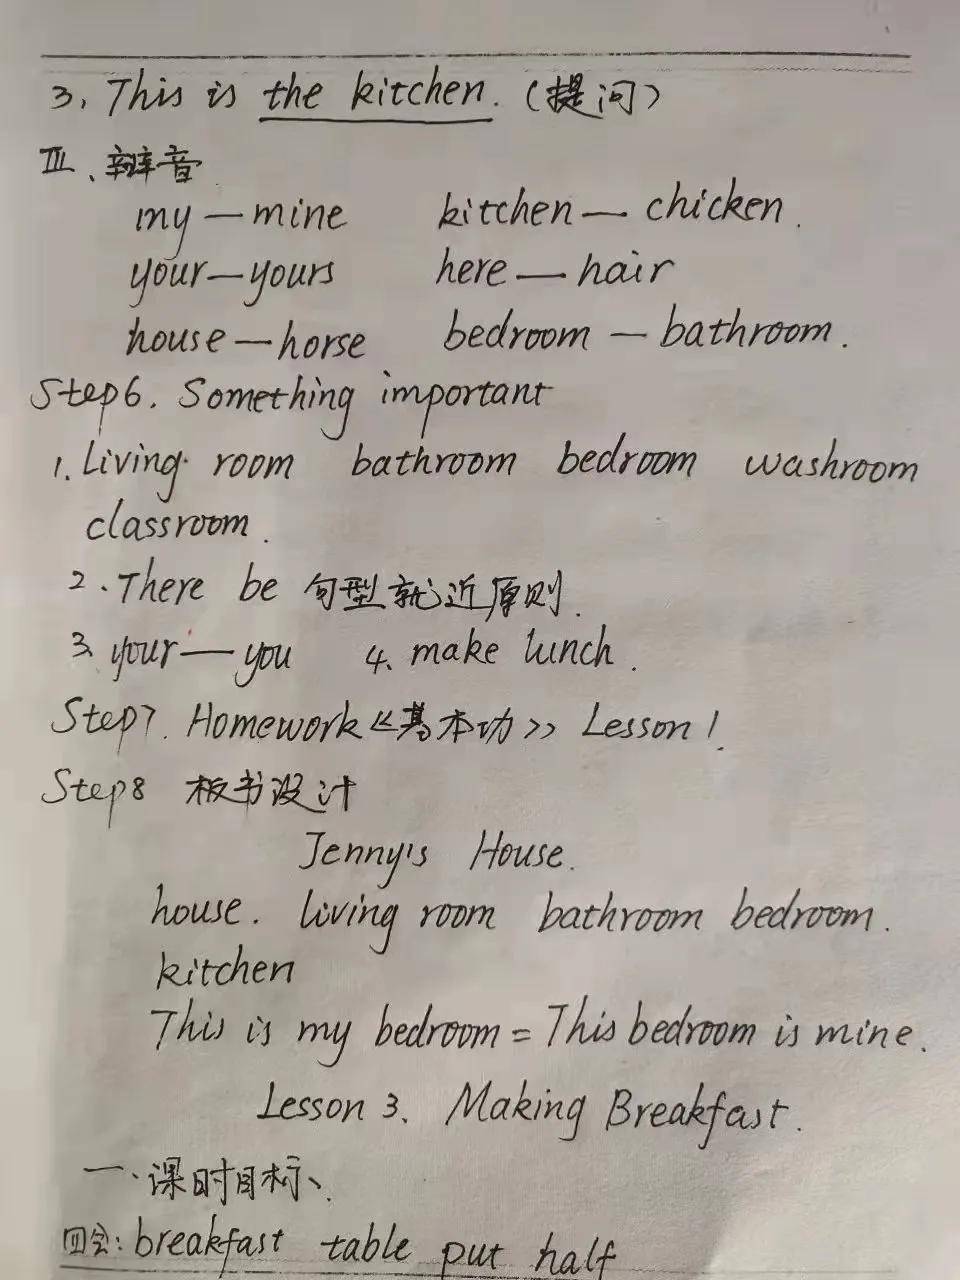 3. This is the kitchen. (提问)
III、辩音
my — mine kitchen — chicken.
your — yours here — hair
house — horse bedroom — bathroom.
Step6. Something important
1. Living room bathroom bedroom washroom
classroom.
2. There be 句型就近原则.
3、your — you 4、make lunch.
Step7. Homework《基本功》 Lesson 1.
Step8 板书设计
Jenny's House.
house. living room bathroom bedroom.
kitchen
This is my bedroom = This bedroom is mine.
Lesson 3. Making Breakfast.
一、课时目标、
四会: breakfast table put half